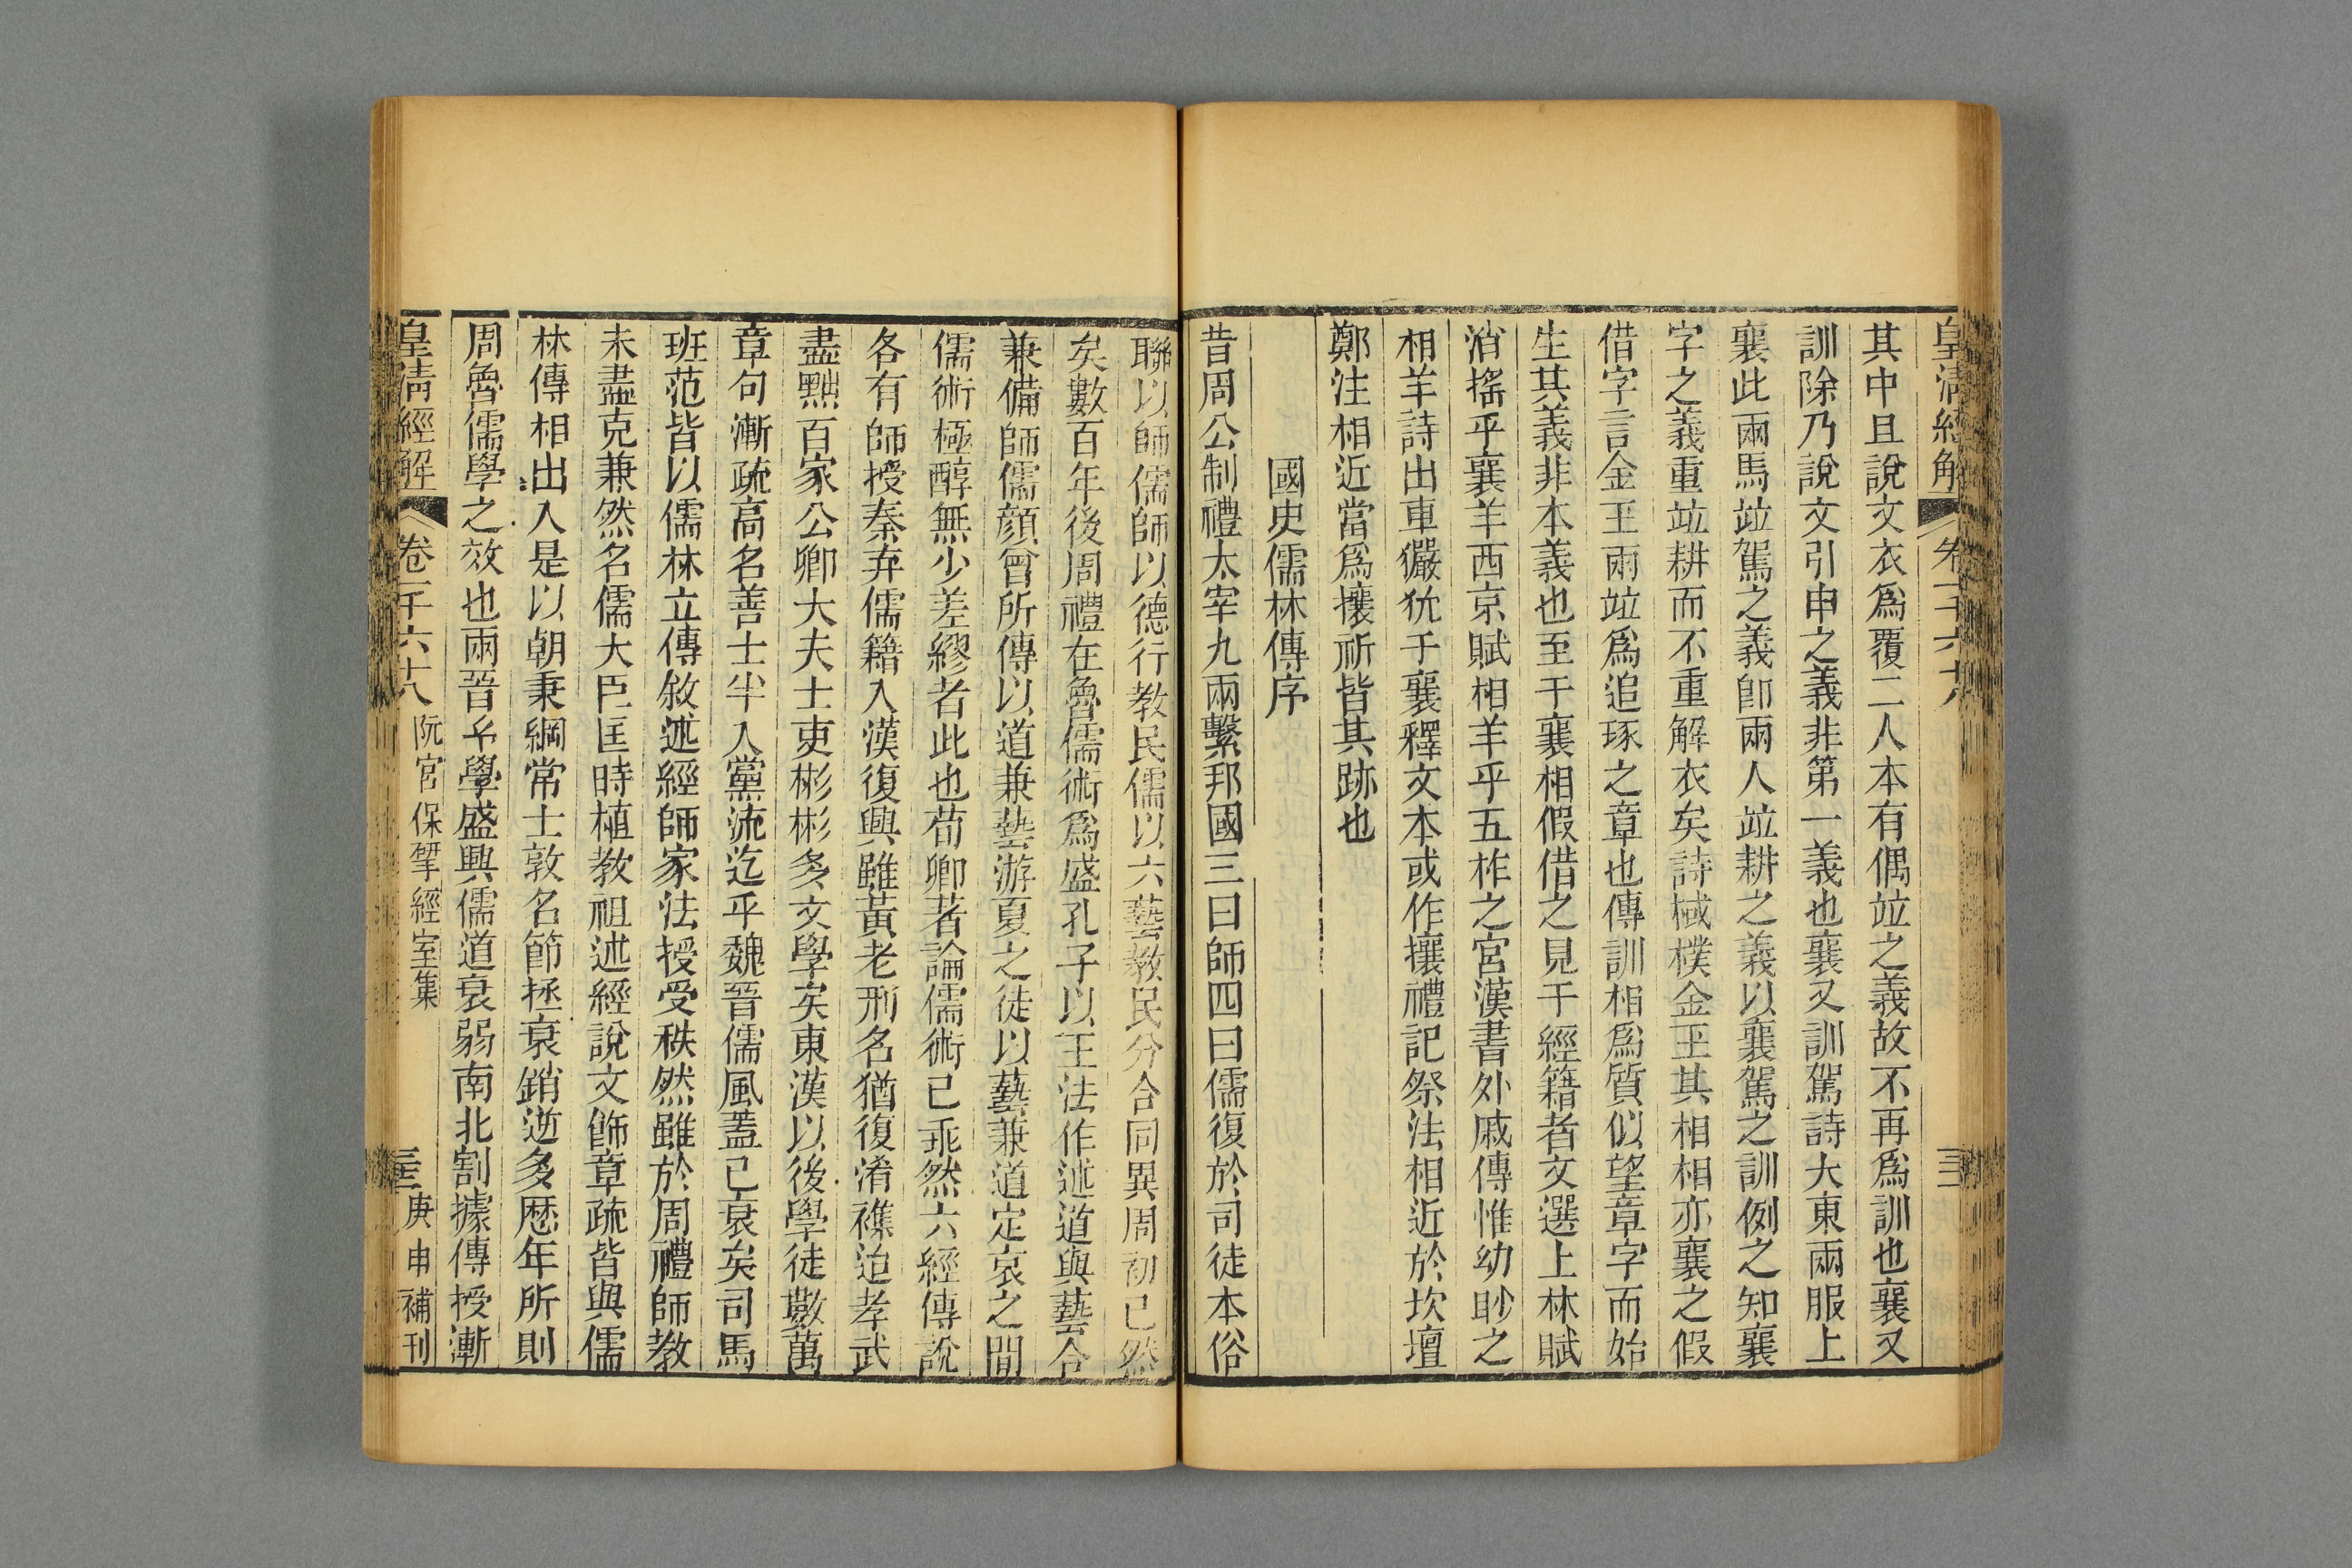 皇淸經解 卷一千六十八
其中且說文衣爲覆二人本有偶竝之義故不再爲訓也襄又
訓除乃說文引申之義非第一義也襄又訓駕詩大東兩服上
襄此兩馬竝駕之義卽兩人竝耕之義以襄駕之訓例之知襄
字之義重竝耕而不重解衣矣詩棫樸金玉其相相亦襄之假
借字言金玉兩竝爲追琢之章也傳訓相爲質似望章字而始
生其義非本義也至于襄相假借之見于經籍者文選上林賦
消搖乎襄羊西京賦相羊乎五柞之宮漢書外戚傳惟幼眇之
相羊詩出車玁狁于襄釋文本或作攘禮記祭法相近於坎壇
鄭注相近當爲攘祈皆其跡也
國史儒林傳序
昔周公制禮太宰九兩繫邦國三曰師四曰儒復於司徒本俗
聯以師儒師以德行教民儒以六藝教民分合同異周初已然
矣數百年後周禮在魯儒術爲盛孔子以王法作述道與藝合
兼備師儒顔曾所傳以道兼藝游夏之徒以藝兼道定哀之間
儒術極醇無少差繆者此也荀卿著論儒術已乖然六經傳說
各有師授秦弃儒籍入漢復興雖黃老刑名猶復淆襍迨孝武
盡黜百家公卿大夫士吏彬彬多文學矣東漢以後學徒數萬
章句漸疏高名善士半入黨流迄乎魏晉儒風蓋已衰矣司馬
班范皆以儒林立傳敘述經師家法授受秩然雖於周禮師教
未盡克兼然名儒大臣匡時植教祖述經說文飾章疏皆與儒
林傳相出入是以朝秉綱常士敦名節拯衰銷逆多歷年所則
周魯儒學之效也兩晉玄學盛興儒道衰弱南北割據傳授漸
皇淸經解 卷一千六十八 阮宮保揅經室集 三 庚申補刊